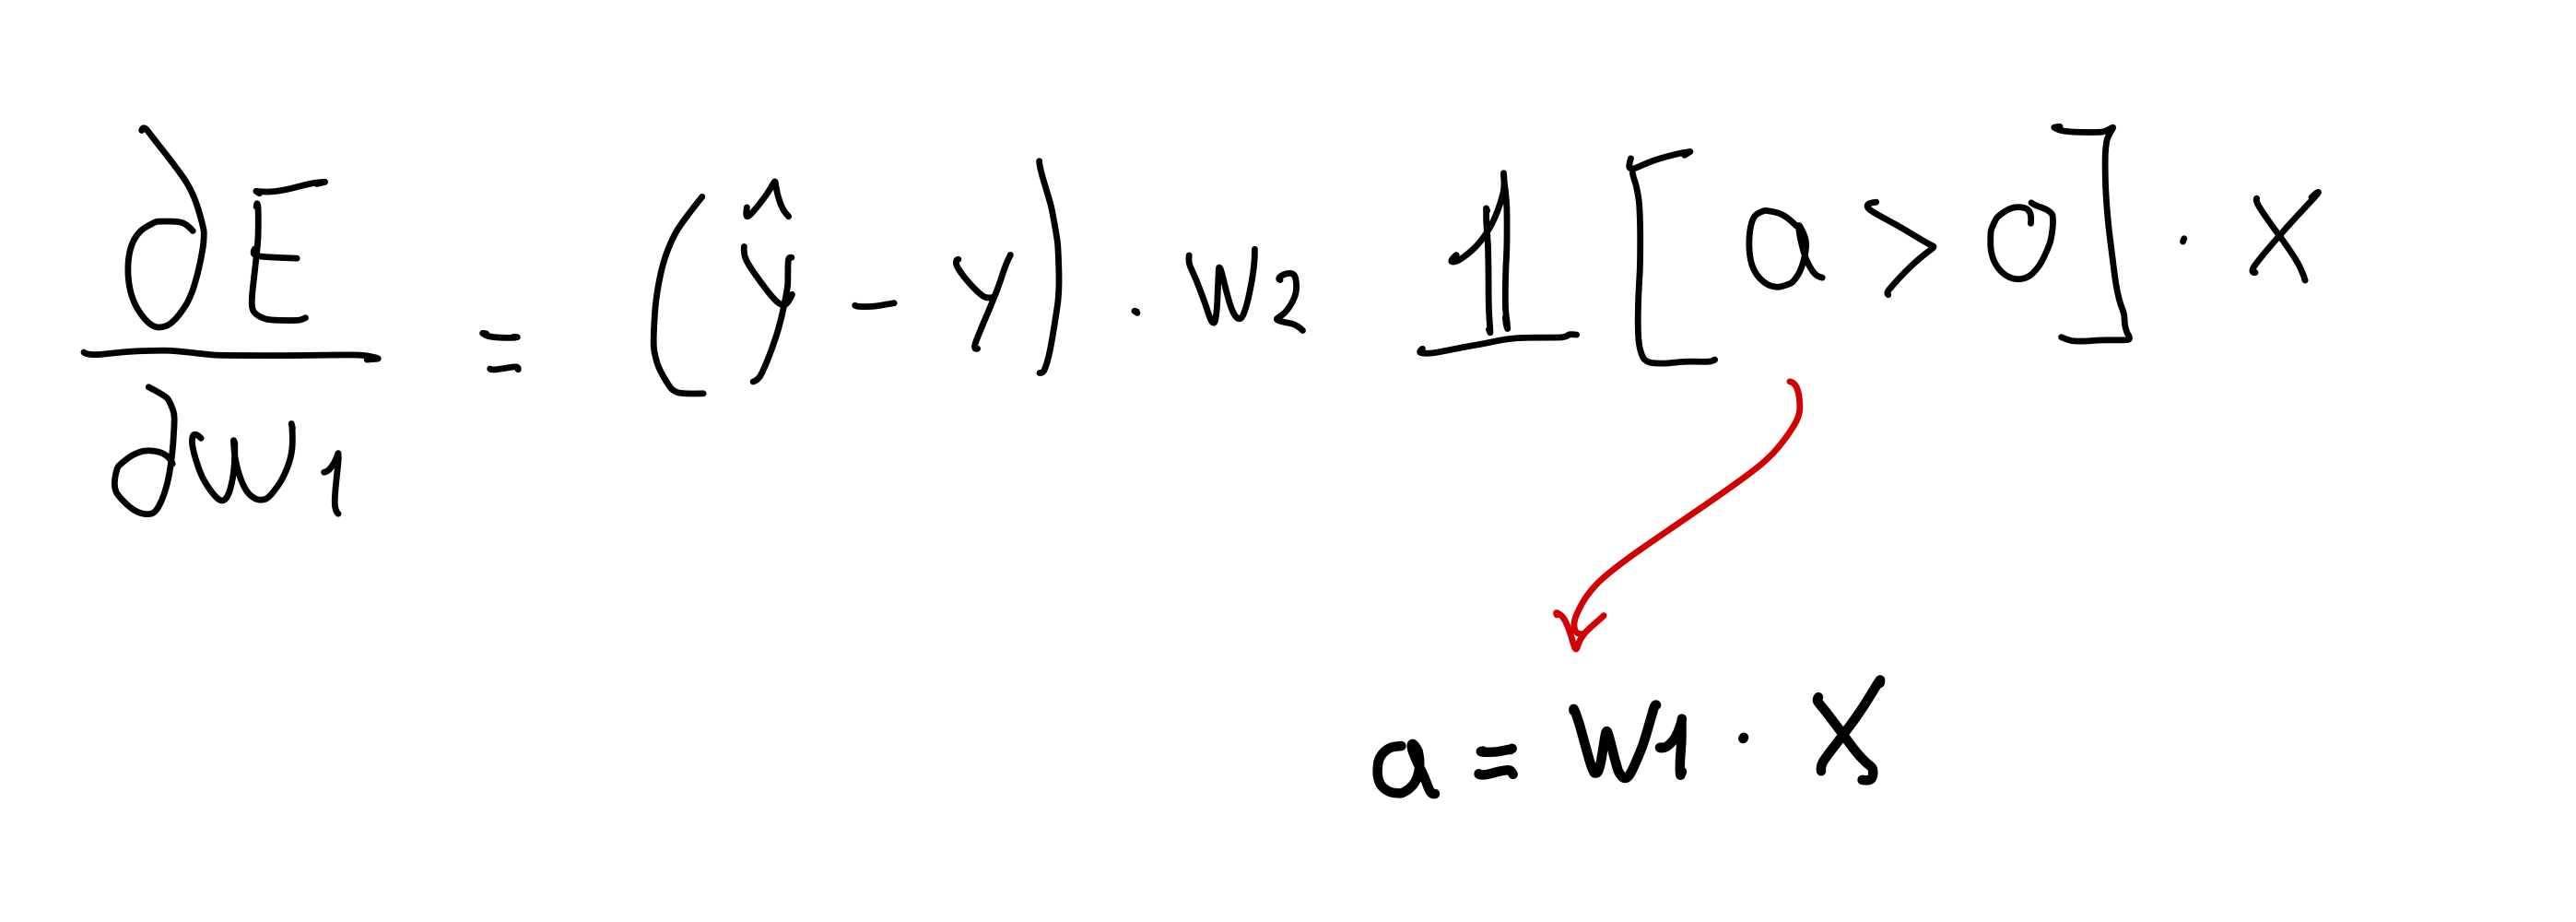 ∂E/∂w₁ = (ŷ - y) · w₂ 𝟙[a > 0] · x
a = w₁ · x